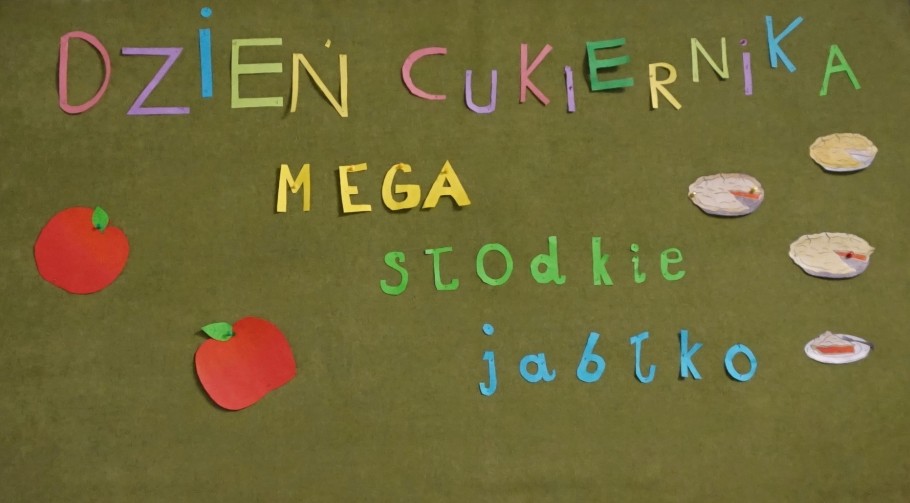 DZIEŃ CUKIERNIKA
MEGA
słodkie
jabłko